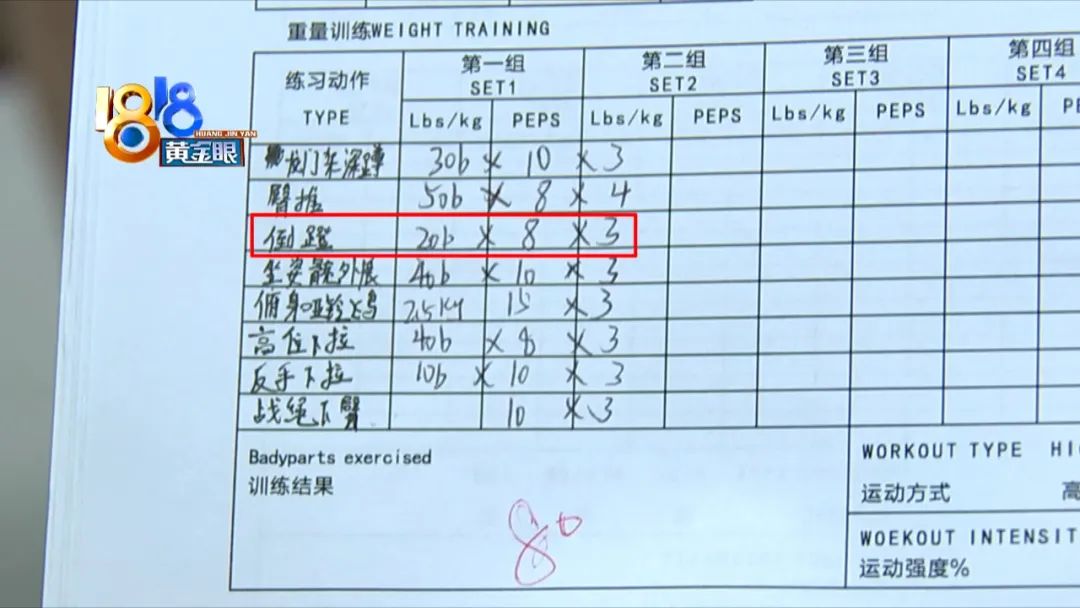 重量训练WEIGHT TRAINING
练习动作 TYPE 第一组 SET1 第二组 SET2 第三组 SET3 第四组 SET4
Lbs/kg PEPS Lbs/kg PEPS Lbs/kg PEPS Lbs/kg
1818
HUANG JIN YAN
黄金眼
龙门架深蹲 30b × 10 × 3
臀推 50b × 8 × 4
倒蹬 20b × 8 × 3
坐姿髋外展 40b × 10 × 3
俯身哑铃飞鸟 7.5kg 15 × 3
高位下拉 40b × 8 × 3
反手下拉 10b × 10 × 3
战绳下臂 10 × 3
Badyparts exercised
训练结果
WORKOUT TYPE
运动方式 高
WOEKOUT INTENSIT
运动强度%